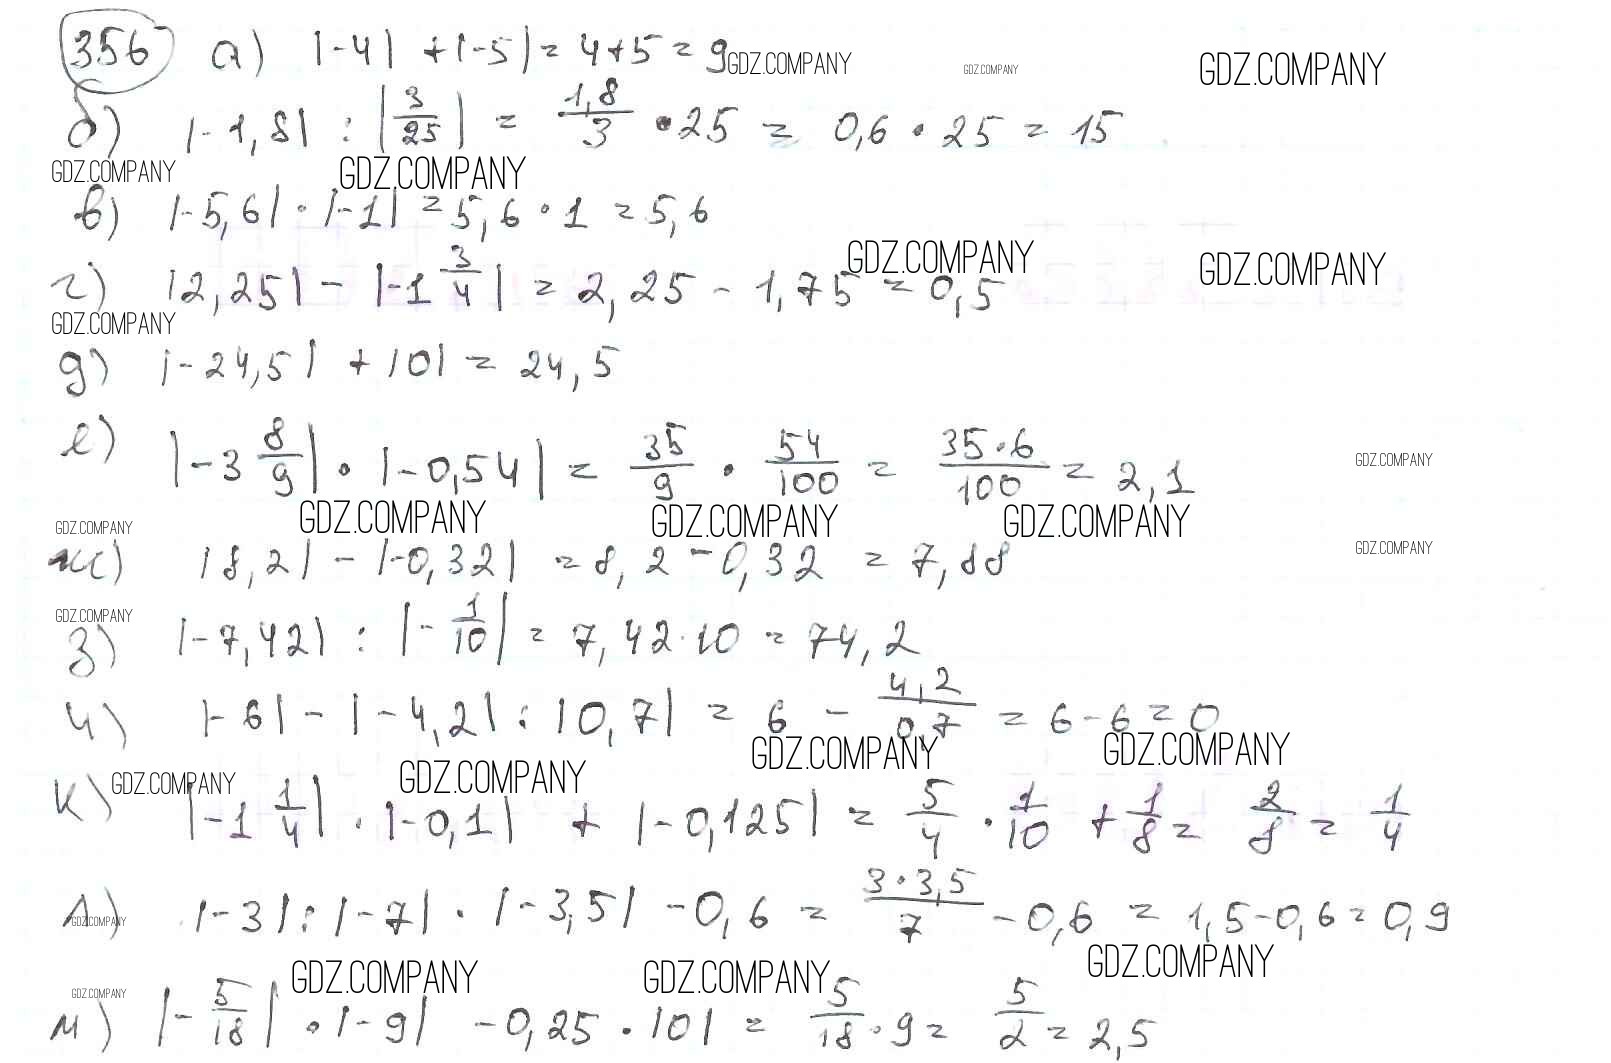 356 а) |-4| + |-5| = 4+5 = 9 GDZ.COMPANY GDZ.COMPANY GDZ.COMPANY
б) |-1,8| : |3/25| = 1,8/3 • 25 = 0,6 • 25 = 15
GDZ.COMPANY GDZ.COMPANY
в) |-5,6| • |-1| = 5,6 • 1 = 5,6
GDZ.COMPANY GDZ.COMPANY
г) |2,25| - |-1 3/4| = 2,25 - 1,75 = 0,5
GDZ.COMPANY
д) |-24,5| + |0| = 24,5
е) |-3 8/9| • |-0,54| = 35/9 • 54/100 = 35•6/100 = 2,1 GDZ.COMPANY
GDZ.COMPANY GDZ.COMPANY GDZ.COMPANY GDZ.COMPANY
ж) |8,2| - |-0,32| = 8,2 - 0,32 = 7,88 GDZ.COMPANY
GDZ.COMPANY
з) |-7,42| : |-1/10| = 7,42·10 = 74,2
и) |-6| - |-4,2| : |0,7| = 6 - 4,2/0,7 = 6-6=0
GDZ.COMPANY GDZ.COMPANY GDZ.COMPANY GDZ.COMPANY
к) |-1 1/4| • |-0,1| + |-0,125| = 5/4 • 1/10 + 1/8 = 2/8 = 1/4
л) |-3| : |-7| • |-3,5| - 0,6 = 3•3,5/7 - 0,6 = 1,5-0,6=0,9
GDZ.COMPANY
GDZ.COMPANY GDZ.COMPANY GDZ.COMPANY GDZ.COMPANY
м) |-5/18| • |-9| - 0,25 • |0| = 5/18 • 9 = 5/2 = 2,5